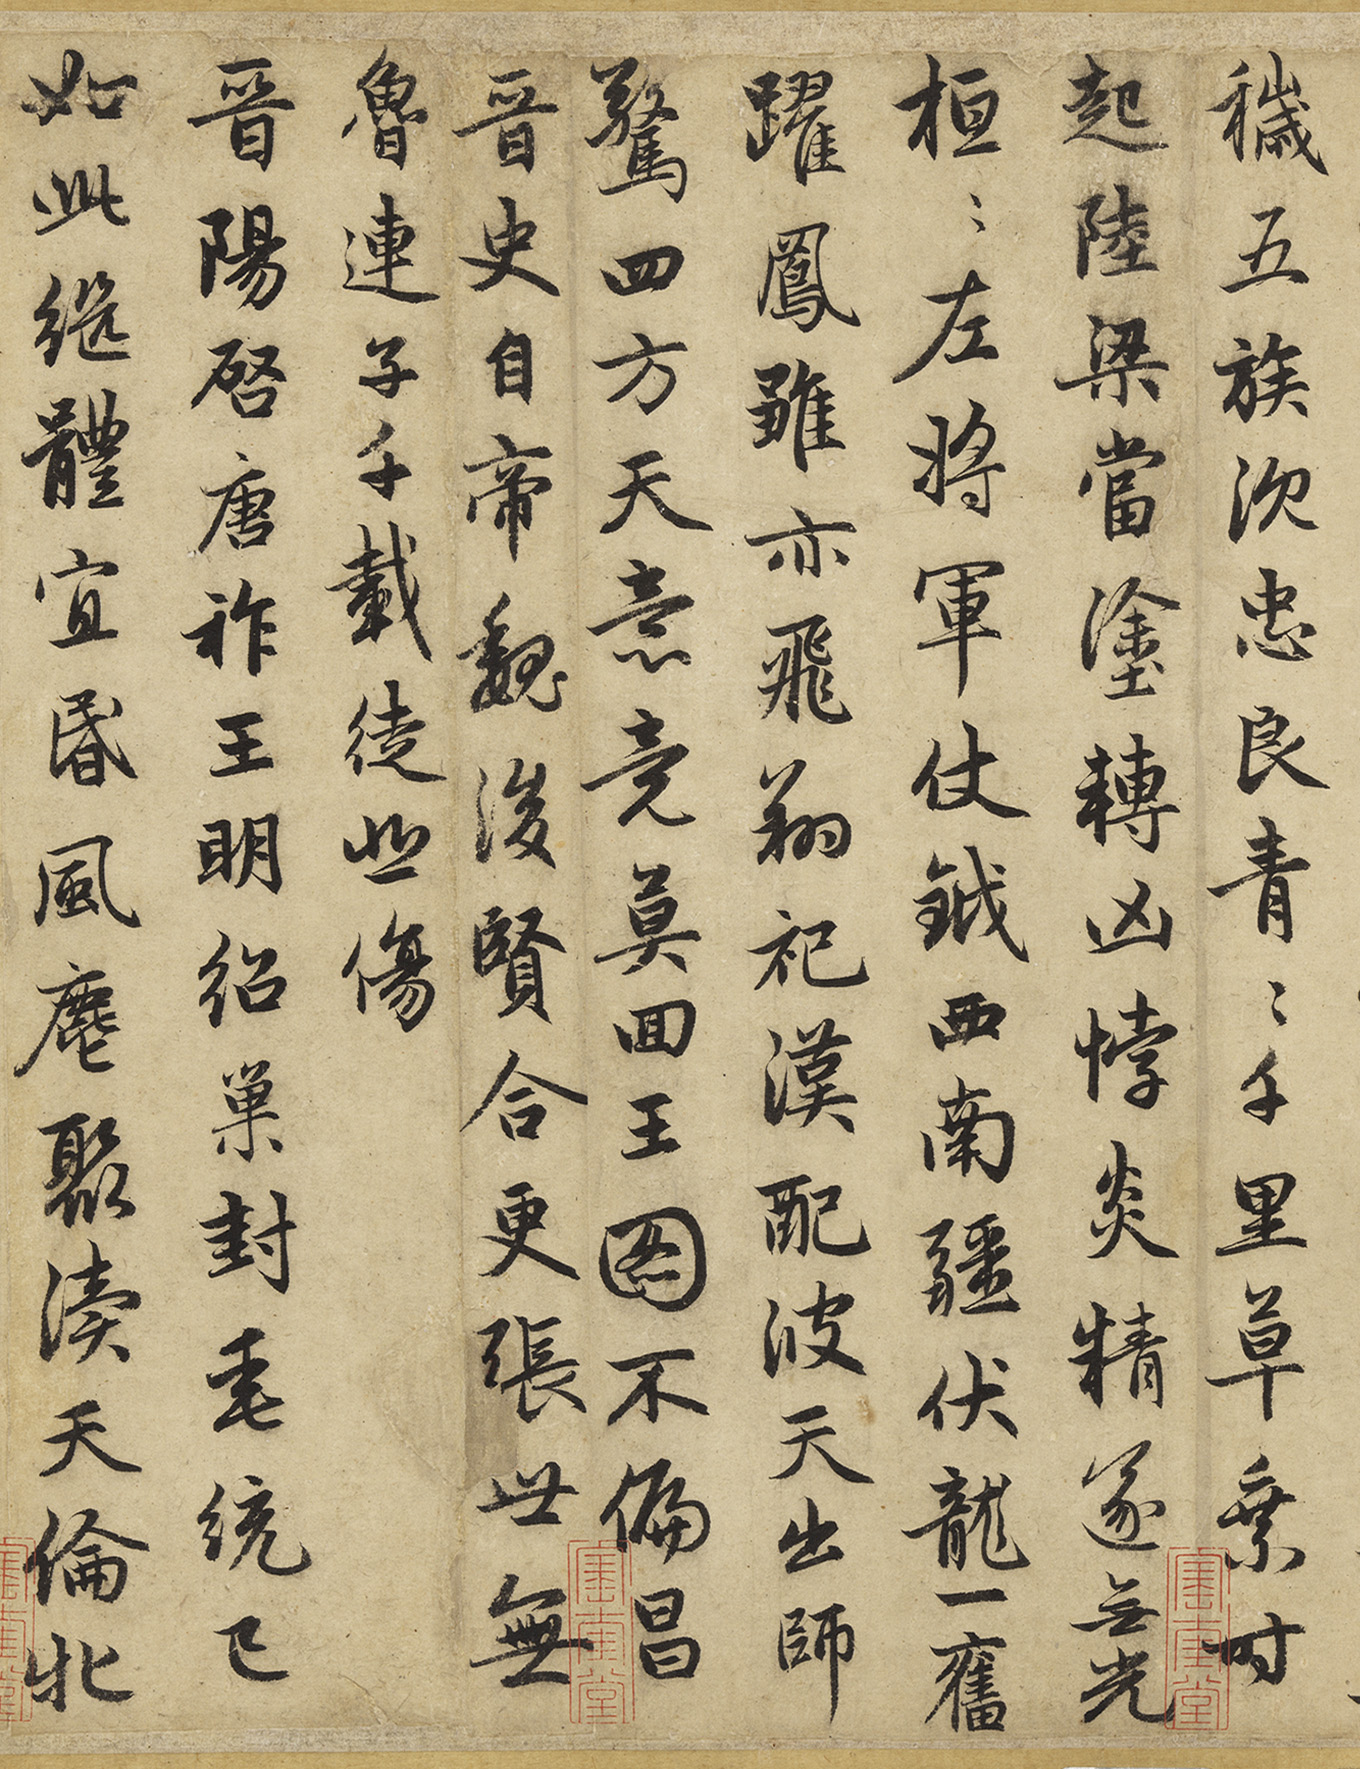 穢五族沈忠良青〻千里草乘时
起陸梁當塗轉凶悖炎精遂无光
桓〻左將軍仗鉞西南疆伏龍一奮
躍鳳雖亦飛翔祀漢配彼天出師
驚四方天意竟莫回王圖不偏昌
晉史自帝魏後賢合更張世無
魯連子千載徒悲傷
晉陽啓唐祚王明紹巢封垂統已
如此継體宜昬風麀聚瀆天倫牝